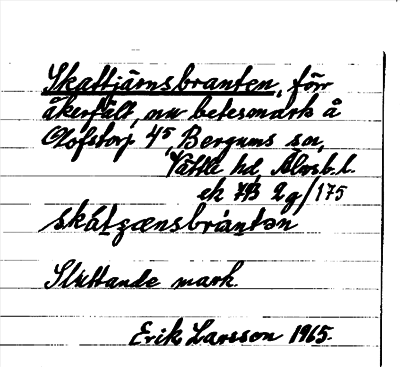 Skattjärnsbranten, förr
åkerfält, nu betesmark å
Olofstorp 4⁵ Bergums sn,
Vättle hd, Älvsb. l.
ek 7B 2g/175
skátjænsbràntən
Sluttande mark.
Erik Larsson 1965.